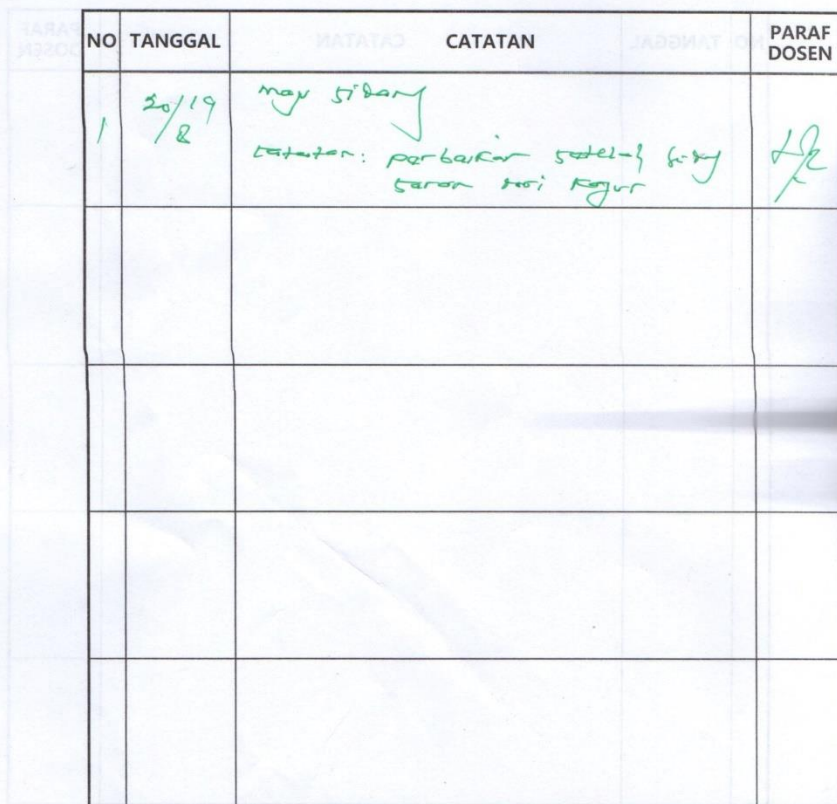 NO TANGGAL CATATAN PARAF DOSEN
1 20/19 /8 maju sidang
catatan: perbaikan setelah sidang
saran dari